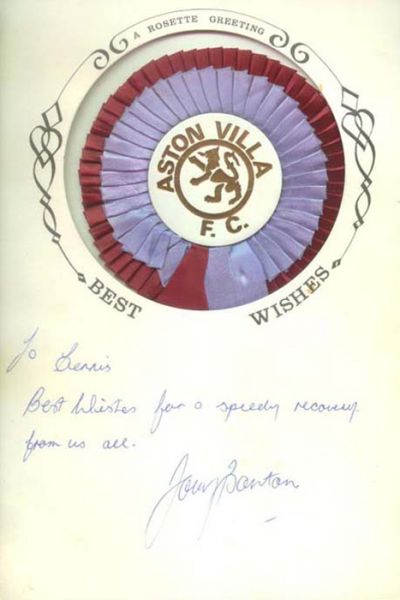 A ROSETTE GREETING
ASTON VILLA
F.C.
BEST WISHES
To Dennis
Best Wishes for a speedy recovery
from us all.
Tony Barton